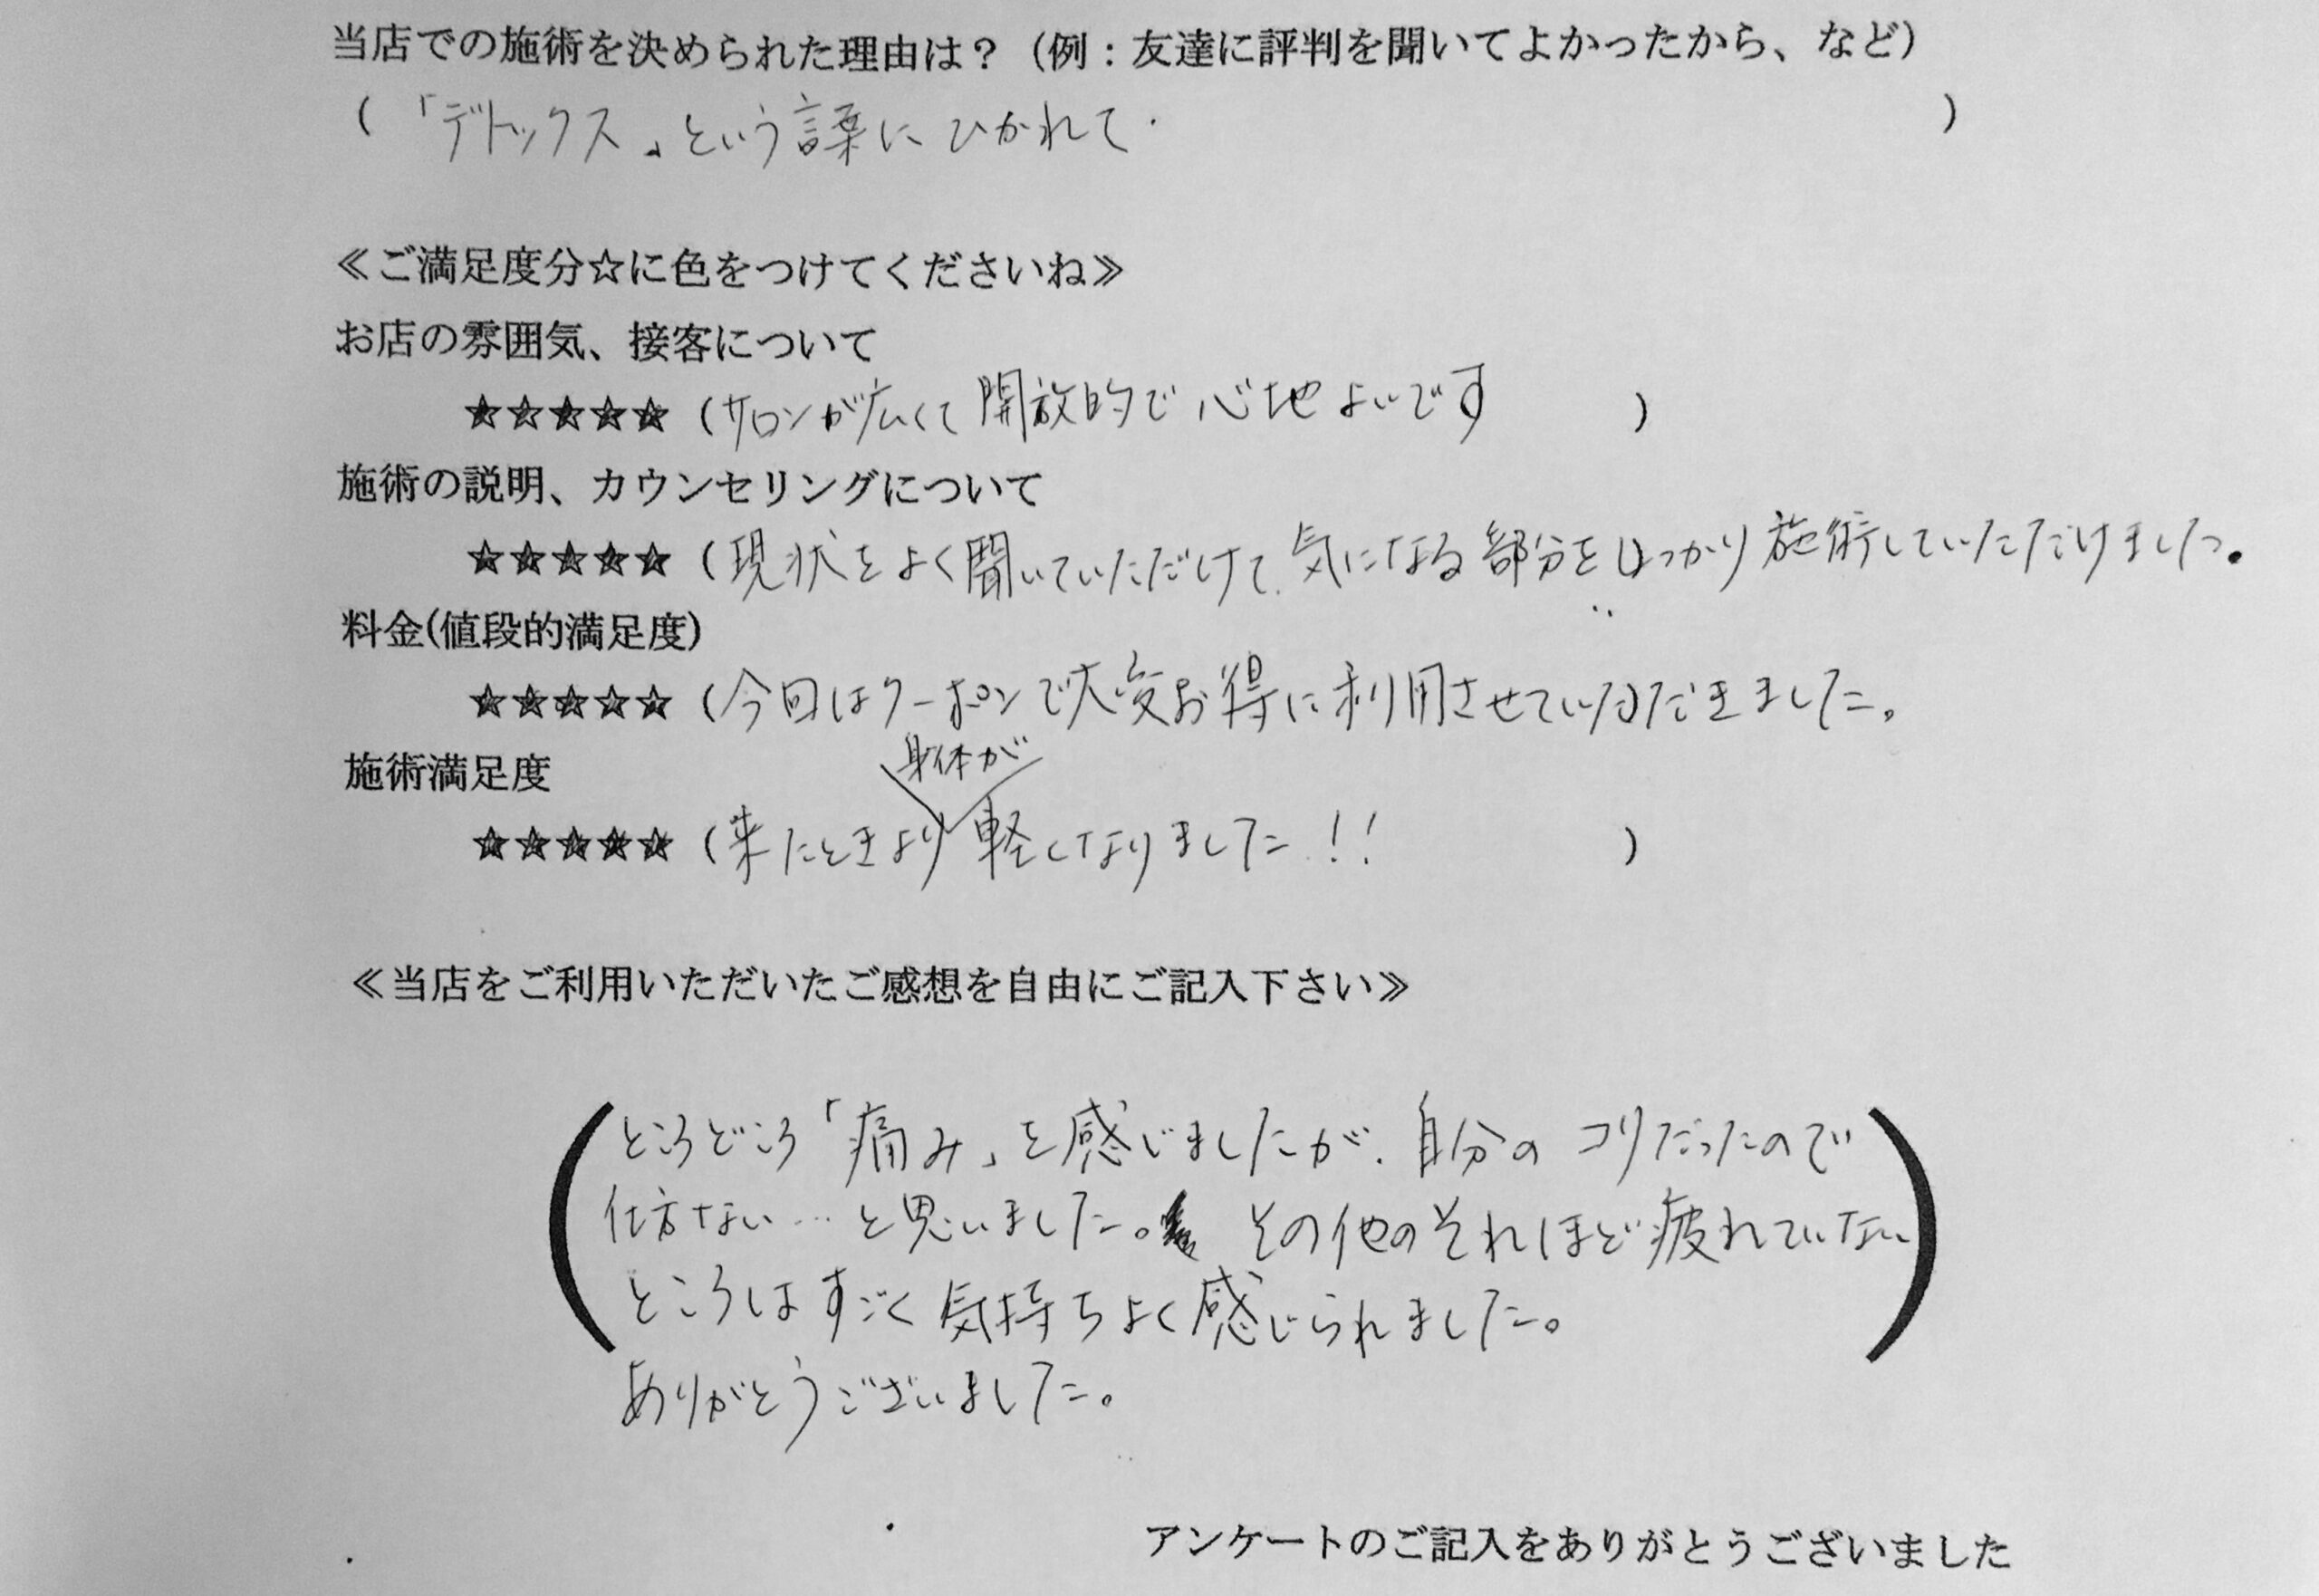 当店での施術を決められた理由は？（例：友達に評判を聞いてよかったから、など）
（「デトックス」という言葉にひかれて．）
≪ご満足度分☆に色をつけてくださいね≫
お店の雰囲気、接客について
★★★★★（サロンが広くて開放的で心地よいです）
施術の説明、カウンセリングについて
★★★★★（現状をよく聞いていただけて、気になる部分をしっかり施術していただけました。
料金(値段的満足度)
★★★★★（今回はクーポンで大変お得に利用させていただきました。
施術満足度
★★★★★（来たときより身体が軽くなりました!!）
≪当店をご利用いただいたご感想を自由にご記入下さい≫
（ところどころ「痛み」を感じましたが、自分のコリだったので
仕方ない…と思いました。その他のそれほど疲れていない
ところはすごく気持ちよく感じられました。）
ありがとうございました。
アンケートのご記入をありがとうございました